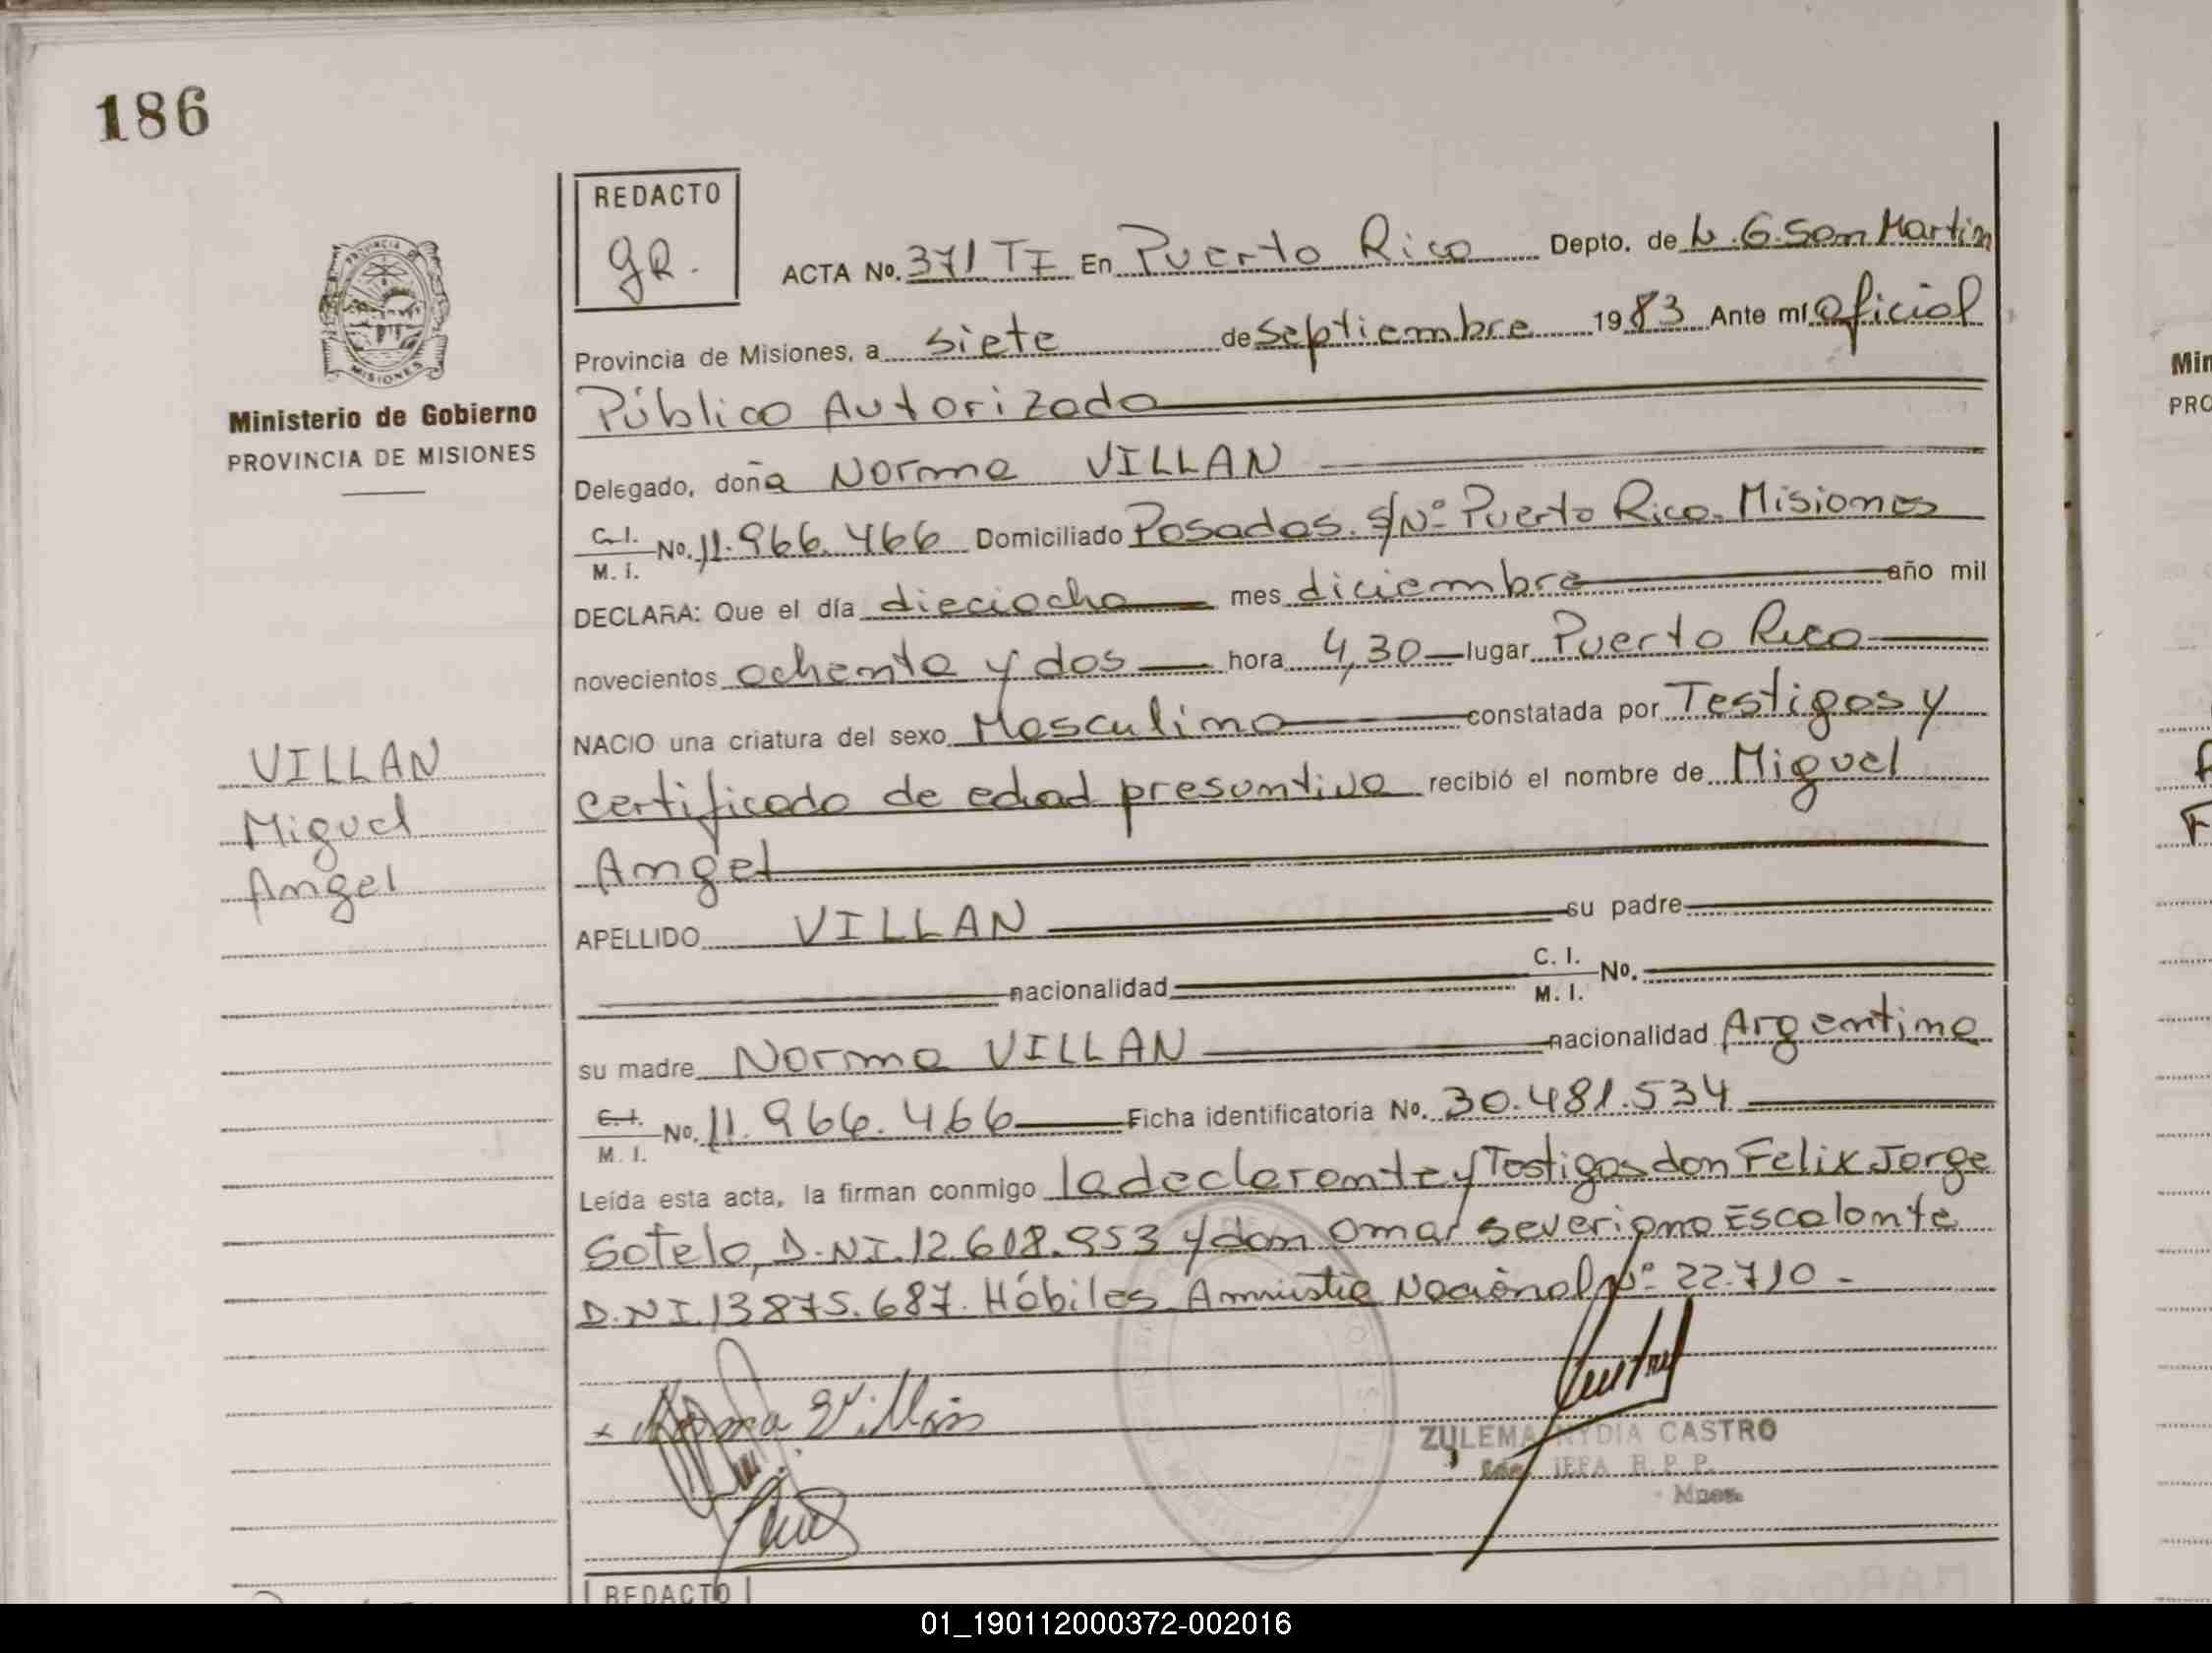 186
REDACTO
gR.
ACTA No. 371 TI En Puerto Rico Depto. de L. G. San Martin
Provincia de Misiones, a siete de septiembre 1983 Ante mí Oficial
Público Autorizado
Delegado, doña Norma VILLAN
C.I. M.I. No. 11.966.466 Domiciliado Posadas. S/Nº Puerto Rico. Misiones
DECLARA: Que el día dieciocho mes diciembre año mil
novecientos ochenta y dos hora 4,30 lugar Puerto Rico
NACIO una criatura del sexo Masculino constatada por Testigos y
certificado de edad presuntiva recibió el nombre de Miguel
Angel
APELLIDO VILLAN su padre
nacionalidad C. I. M. I. No.
su madre Norma VILLAN nacionalidad Argentina
C.I. M. I. No. 11.966.466 Ficha identificatoria No. 30.481.534
Leída esta acta, la firman conmigo la declarante y Testigos don Felix Jorge
Sotelo, D.NI.12.618.953 y don Omar Severiano Escalante
D.NI.13875.687. Hábiles Amnistia Nacional Nº 22.710 -
x Norma Villan
ZULEMA NYDIA CASTRO
JEFA R.P.P.
Mnes.
REDACTO
PROVINCIA DE
MISIONES
Ministerio de Gobierno
PROVINCIA DE MISIONES
VILLAN
Miguel
Angel
Min
PRO
01_190112000372-002016